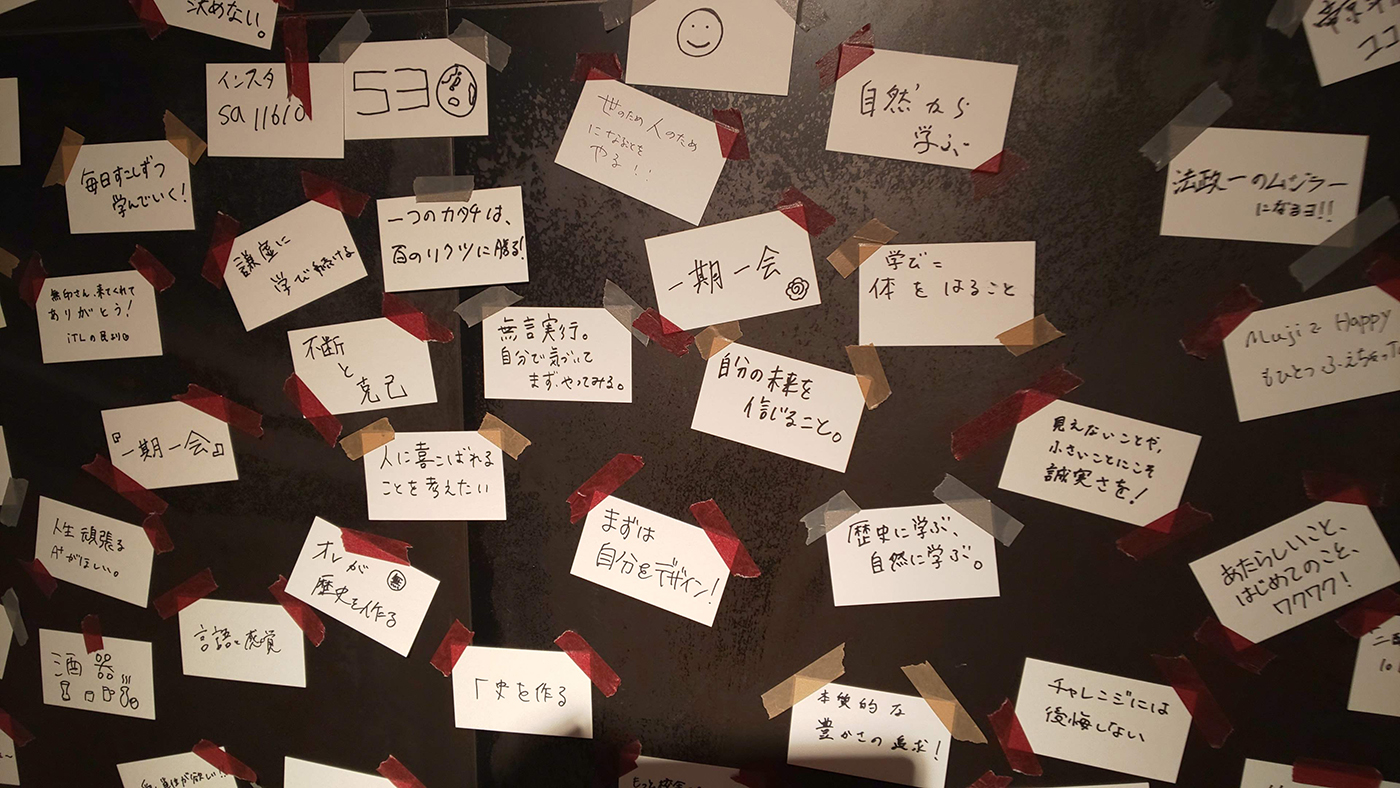 決めない。
インスタ
sa11610
530
世のため人のため
になることを
やる!!
自然から
学ぶ
ココ
毎日すこしずつ
学んでいく!
謙虚に
学び続ける
一つのカタチは、
百のリクツに勝る!
一期一会
学び=
体をはること
法政一のムジラー
になるヨ!!
無印さん、来てくれて
ありがとう!
iTLの民より
不断
と
克己
無言実行。
自分で気づいて
まず、やってみる。
自分の未来を
信じること。
MujiでHappy
もひとつ
『一期一会』
人に喜こばれる
ことを考えたい
見えないことや、
小さいことにこそ
誠実さを!
人生頑張る
A+がほしい。
オレが
歴史を作る
無
まずは
自分をデザイン!
歴史に学ぶ、
自然に学ぶ。
あたらしいこと、
はじめてのこと、
ワクワク!
酒器
言語と感覚
史を作る
本質的な
豊かさの追求!
チャレンジには
後悔しない
が欲しい!